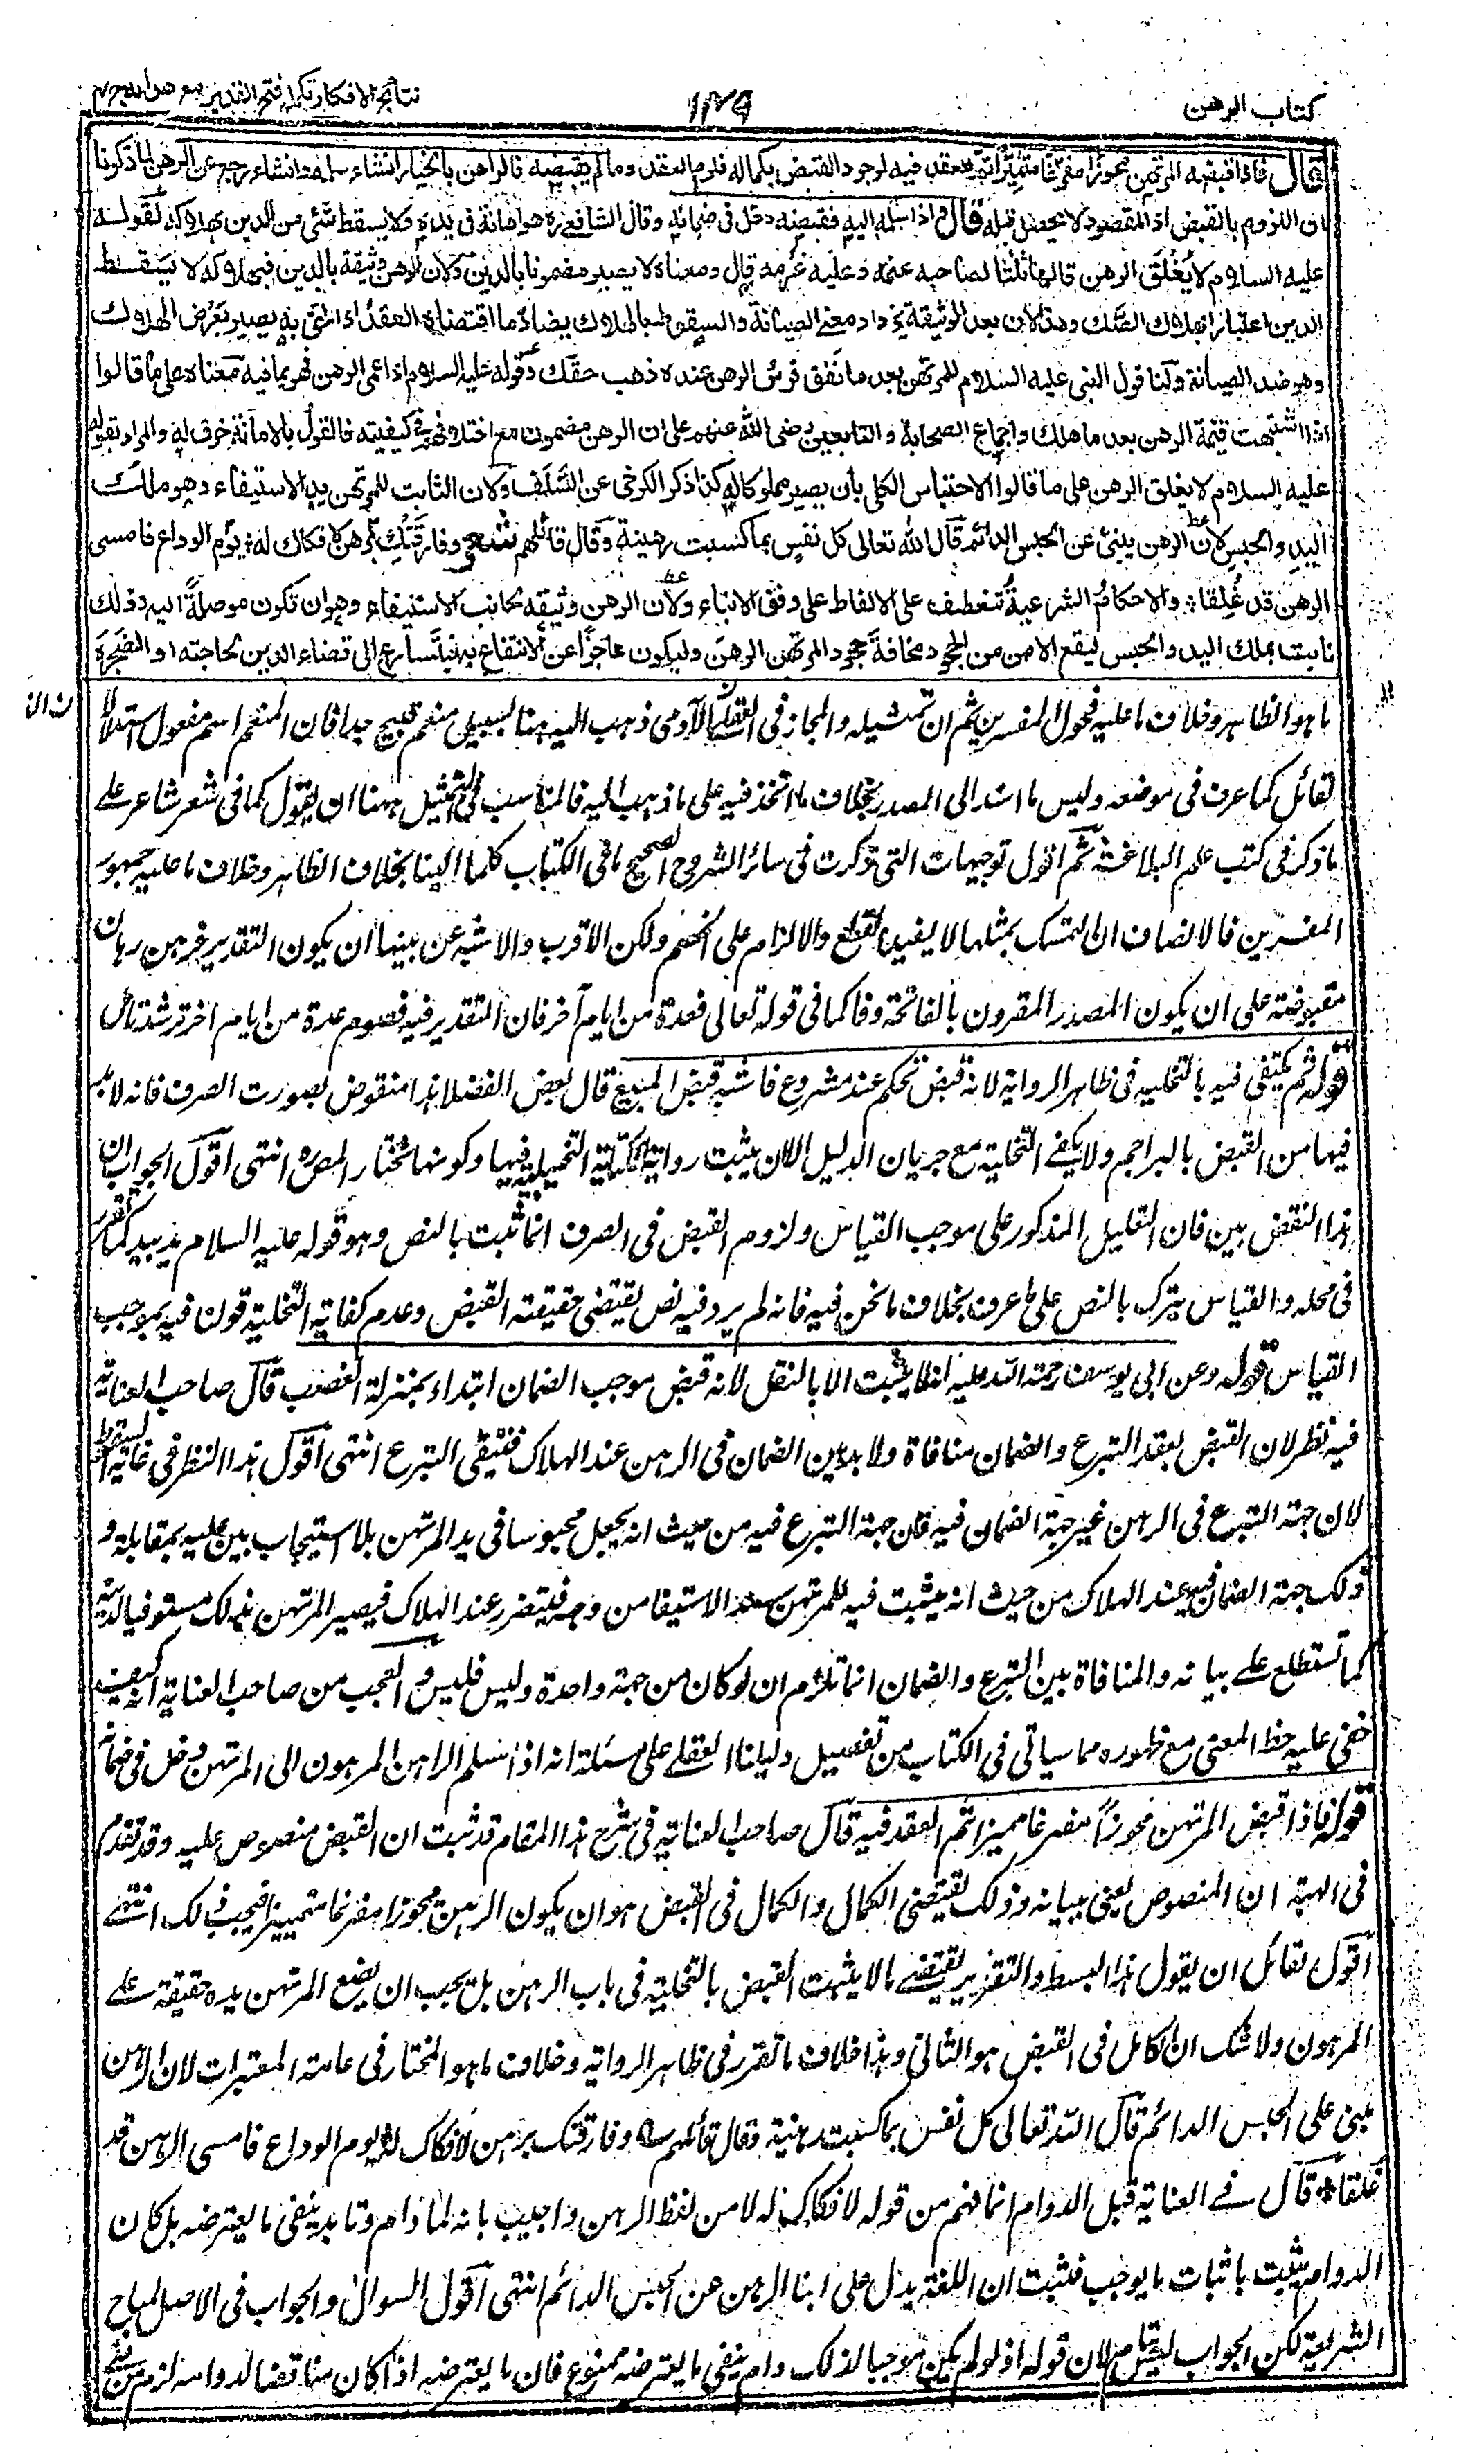 كتاب الرهن
١٢٩
نتائج الافكار تكملة فتح القدير مع هدايه ج ٤
قال فاذا قبضه المرتهن محوزا مفرغا متميزا تم العقد فيه لوجود القبض بكماله فلزم العقد وما لم يقبضه فالراهن بالخيار ان شاء سلمه وان شاء رجع عن الرهن لما ذكرنا
ان اللزوم بالقبض اذ المقصود لا يحصل قبله قال واذا سلمه اليه فقبضه دخل فى ضمانه وقال الشافعى ره هو امانة فى يده ولا يسقط شئ من الدين بهلاكه لقوله
عليه السلام لا يغلق الرهن قالها ثلثا لصاحبه غنمه وعليه غرمه قال ومعناه لا يصير مضمونا بالدين ولان الرهن وثيقة بالدين فبهلاكه لا يسقط
الدين اعتبارا بهلاك الصك وهذا لان بعد الوثيقة يزداد معنى الصيانة والسقوط بالهلاك يضاد ما اقتضاه العقد اذ الحق به يصير بعرض الهلاك
وهو ضد الصيانة ولنا قول النبى عليه السلام للمرتهن بعد ما نفق فرس الرهن عنده ذهب حقك وقوله عليه السلام اذا عمى الرهن فهو بما فيه معناه على ما قالوا
اذا اشتبهت قيمة الرهن بعد ما هلك واجماع الصحابة والتابعين رضى الله عنهم على ان الرهن مضمون مع اختلافهم فى كيفيته فالقول بالامانة خرق له والمراد بقوله
عليه السلام لا يغلق الرهن على ما قالوا الاحتباس الكلى بان يصير مملوكا له كذا ذكر الكرخى عن السلف ولان الثابت للمرتهن يد الاستيفاء وهو ملك
اليد والحبس لان الرهن ينبئ عن الحبس الدائم قال الله تعالى كل نفس بما كسبت رهينة وقال قائلهم شعر وفارقتك برهن لا فكاك له يوم الوداع فامسى
الرهن قد غلقا والاحكام الشرعية تنعطف على الالفاظ على وفق الانباء ولان الرهن وثيقة لجانب الاستيفاء وهو ان تكون موصلة اليه وذلك
ثابت بملك اليد والحبس ليقع الامن من الجحود مخافة جحود المرتهن الرهن وليكون عاجزا عن الانتفاع به فيتسارع الى قضاء الدين لحاجته او لضجره
ما هو الظاهر وخلاف ما عليه فحول المفسرين ثم ان تمثيله والمجاز فى العقل الذى ذهب اليه هنا لسبيل منعم قبيح جدا فان المنعم اسم مفعول استدلالا
لقائل كما عرف فى موضعه وليس ما اسند الى المصدر بخلاف ما اتخذ فيه على ما ذهب اليه فالمناسب فى التمثيل ههنا ان يقول كما فى شعر شاعر على
ما ذكر فى كتب علم البلاغة ثم اقول توجيهات التى ذكرت فى سائر الشروح لتصحيح ما فى الكتاب كلها بخلاف الظاهر وخلاف ما عليه جمهور
المفسرين فالانصاف ان التمسك بمثلها لا يفيد القطع والالزام على الخصم ولكن الاقرب والاشبه من بينها ان يكون التقدير فرهن رهان
مقبوضة على ان يكون المصدر المقرون بالفاء كما فى قوله تعالى فعدة من ايام اخر فان التقدير فيه فصوم عدة من ايام اخر ترشد تأمل
قوله ثم يكتفى فيه بالتخلية فى ظاهر الرواية لانه قبض بحكم عقد مشروع فاشبه قبض المبيع قال بعض الفضلا هذا منقوض بصورت الصرف فانه لا بد
فيها من القبض بالبراجم ولا يكفى التخلية مع جريان الدليل الا ان يثبت رواية كفاية التخلية فيها وكونها مختار المص ره انتهى اقول الجواب ان
هذا النقض بين فان التعليل المذكور على موجب القياس ولزوم القبض فى الصرف انما ثبت بالنص وهو قوله عليه السلام يد بيد كما تقرر
فى محله والقياس يترك بالنص على ما عرف بخلاف ما نحن فيه فانه لم يرد فيه نص يقتضى حقيقة القبض وعدم كفاية التخلية فيه بموجب
القياس قوله وعن ابى يوسف رحمة الله عليه انه لا يثبت الا بالنقل لانه قبض موجب الضمان ابتداء بمنزلة الغصب قال صاحب العناية
فيه نظر لان القبض بعقد التبرع والضمان منافاة ولا بد من الضمان فى الرهن عند الهلاك فينتفى التبرع انتهى اقول هذا النظر فى غاية السقوط
لان جهة التبرع فى الرهن غير جهة الضمان فيه فان جهة التبرع فيه من حيث انه يجعل محبوسا فى يد المرتهن بلا استيجاب بين عليه بمقابلة و
ذلك جهة الضمان فيه عند الهلاك من حيث انه يثبت فيه للمرتهن يد الاستيفا من وجه فيتقرر عند الهلاك فيصير المرتهن بذلك مستوفيا لدينه
كما تستطلع على بيانه والمنافاة بين التبرع والضمان انما تلزم ان لو كان من جهة واحدة وليس فليس والعجب من صاحب العناية انه كيف
خفى عليه هذا المعنى مع ظهوره مما سياتى فى الكتاب من تفصيل دليلنا العقلى على مسئلة انه اذا سلم الراهن المرهون الى المرتهن دخل فى ضمانه
قوله فاذا قبض المرتهن محوزا مفرغا مميزا تم العقد فيه قال صاحب العناية فى شرح هذا المقام قد ثبت ان القبض منصوص عليه وقد تقدم
فى الهبة ان المنصوص يعنى ببيانه وذلك يقتضى الكمال والكمال فى القبض هو ان يكون الرهن محوزا مفرغا متميزا فيجب ذلك انتهى
اقول لقائل ان يقول هذا البسط والتقرير يقتضى ما لا يثبت القبض بالتخلية فى باب الرهن بل يجب ان يضع المرتهن يده حقيقة على
المرهون ولا شك ان الكامل فى القبض هو الثانى وهذا خلاف ما تقرر فى ظاهر الرواية وخلاف ما هو المختار فى عامة المعتبرات لان الرهن
ينبئ على الحبس الدائم قال الله تعالى كل نفس بما كسبت رهينة وقال قائلهم وفارقتك برهن لا فكاك له يوم الوداع فامسى الرهن قد
غلقا قال فى العناية قيل الدوام انما فهم من قوله لا فكاك له لا من لفظ الرهن واجيب بانه لما دام وتابد ينفى ما يعترضه بل كان
الدوام يثبت باثبات ما يوجب فثبت ان اللغة يدل على ابنا الرهن عن الحبس الدائم انتهى اقول السوال والجواب فى الاصل لتاج
الشريعة لكن الجواب ليس بتام لان قوله اذ لو لم يكن موجبا لذلك دام ينفى ما يعترضه ممنوع فان ما يعترضه اذا كان مناقضا لدوامه لزم من نفى